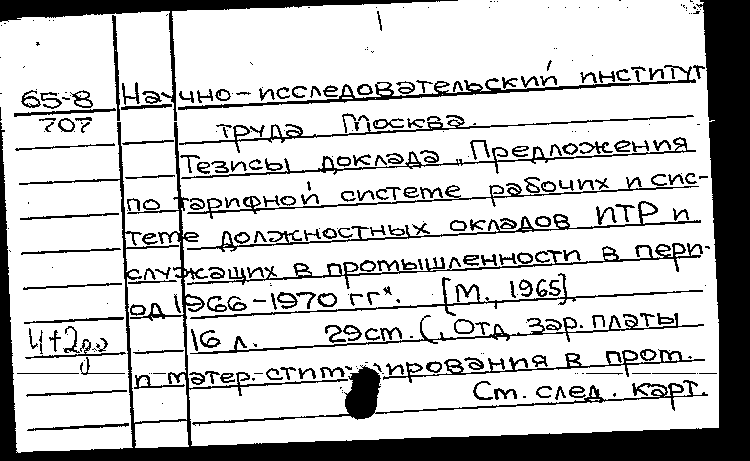 65-8 Научно-исследовательский институт
707 труда. Москва.
Тезисы доклада „Предложения
по тарифной системе рабочих и сис-
теме должностных окладов ИТР и
служащих в промышленности в пери-
од 1966-1970 гг". [М., 1965].
4+2 16 л. 29 ст. („Отд. зар. платы
и матер. стимулирования в пром.
См. след. карт.